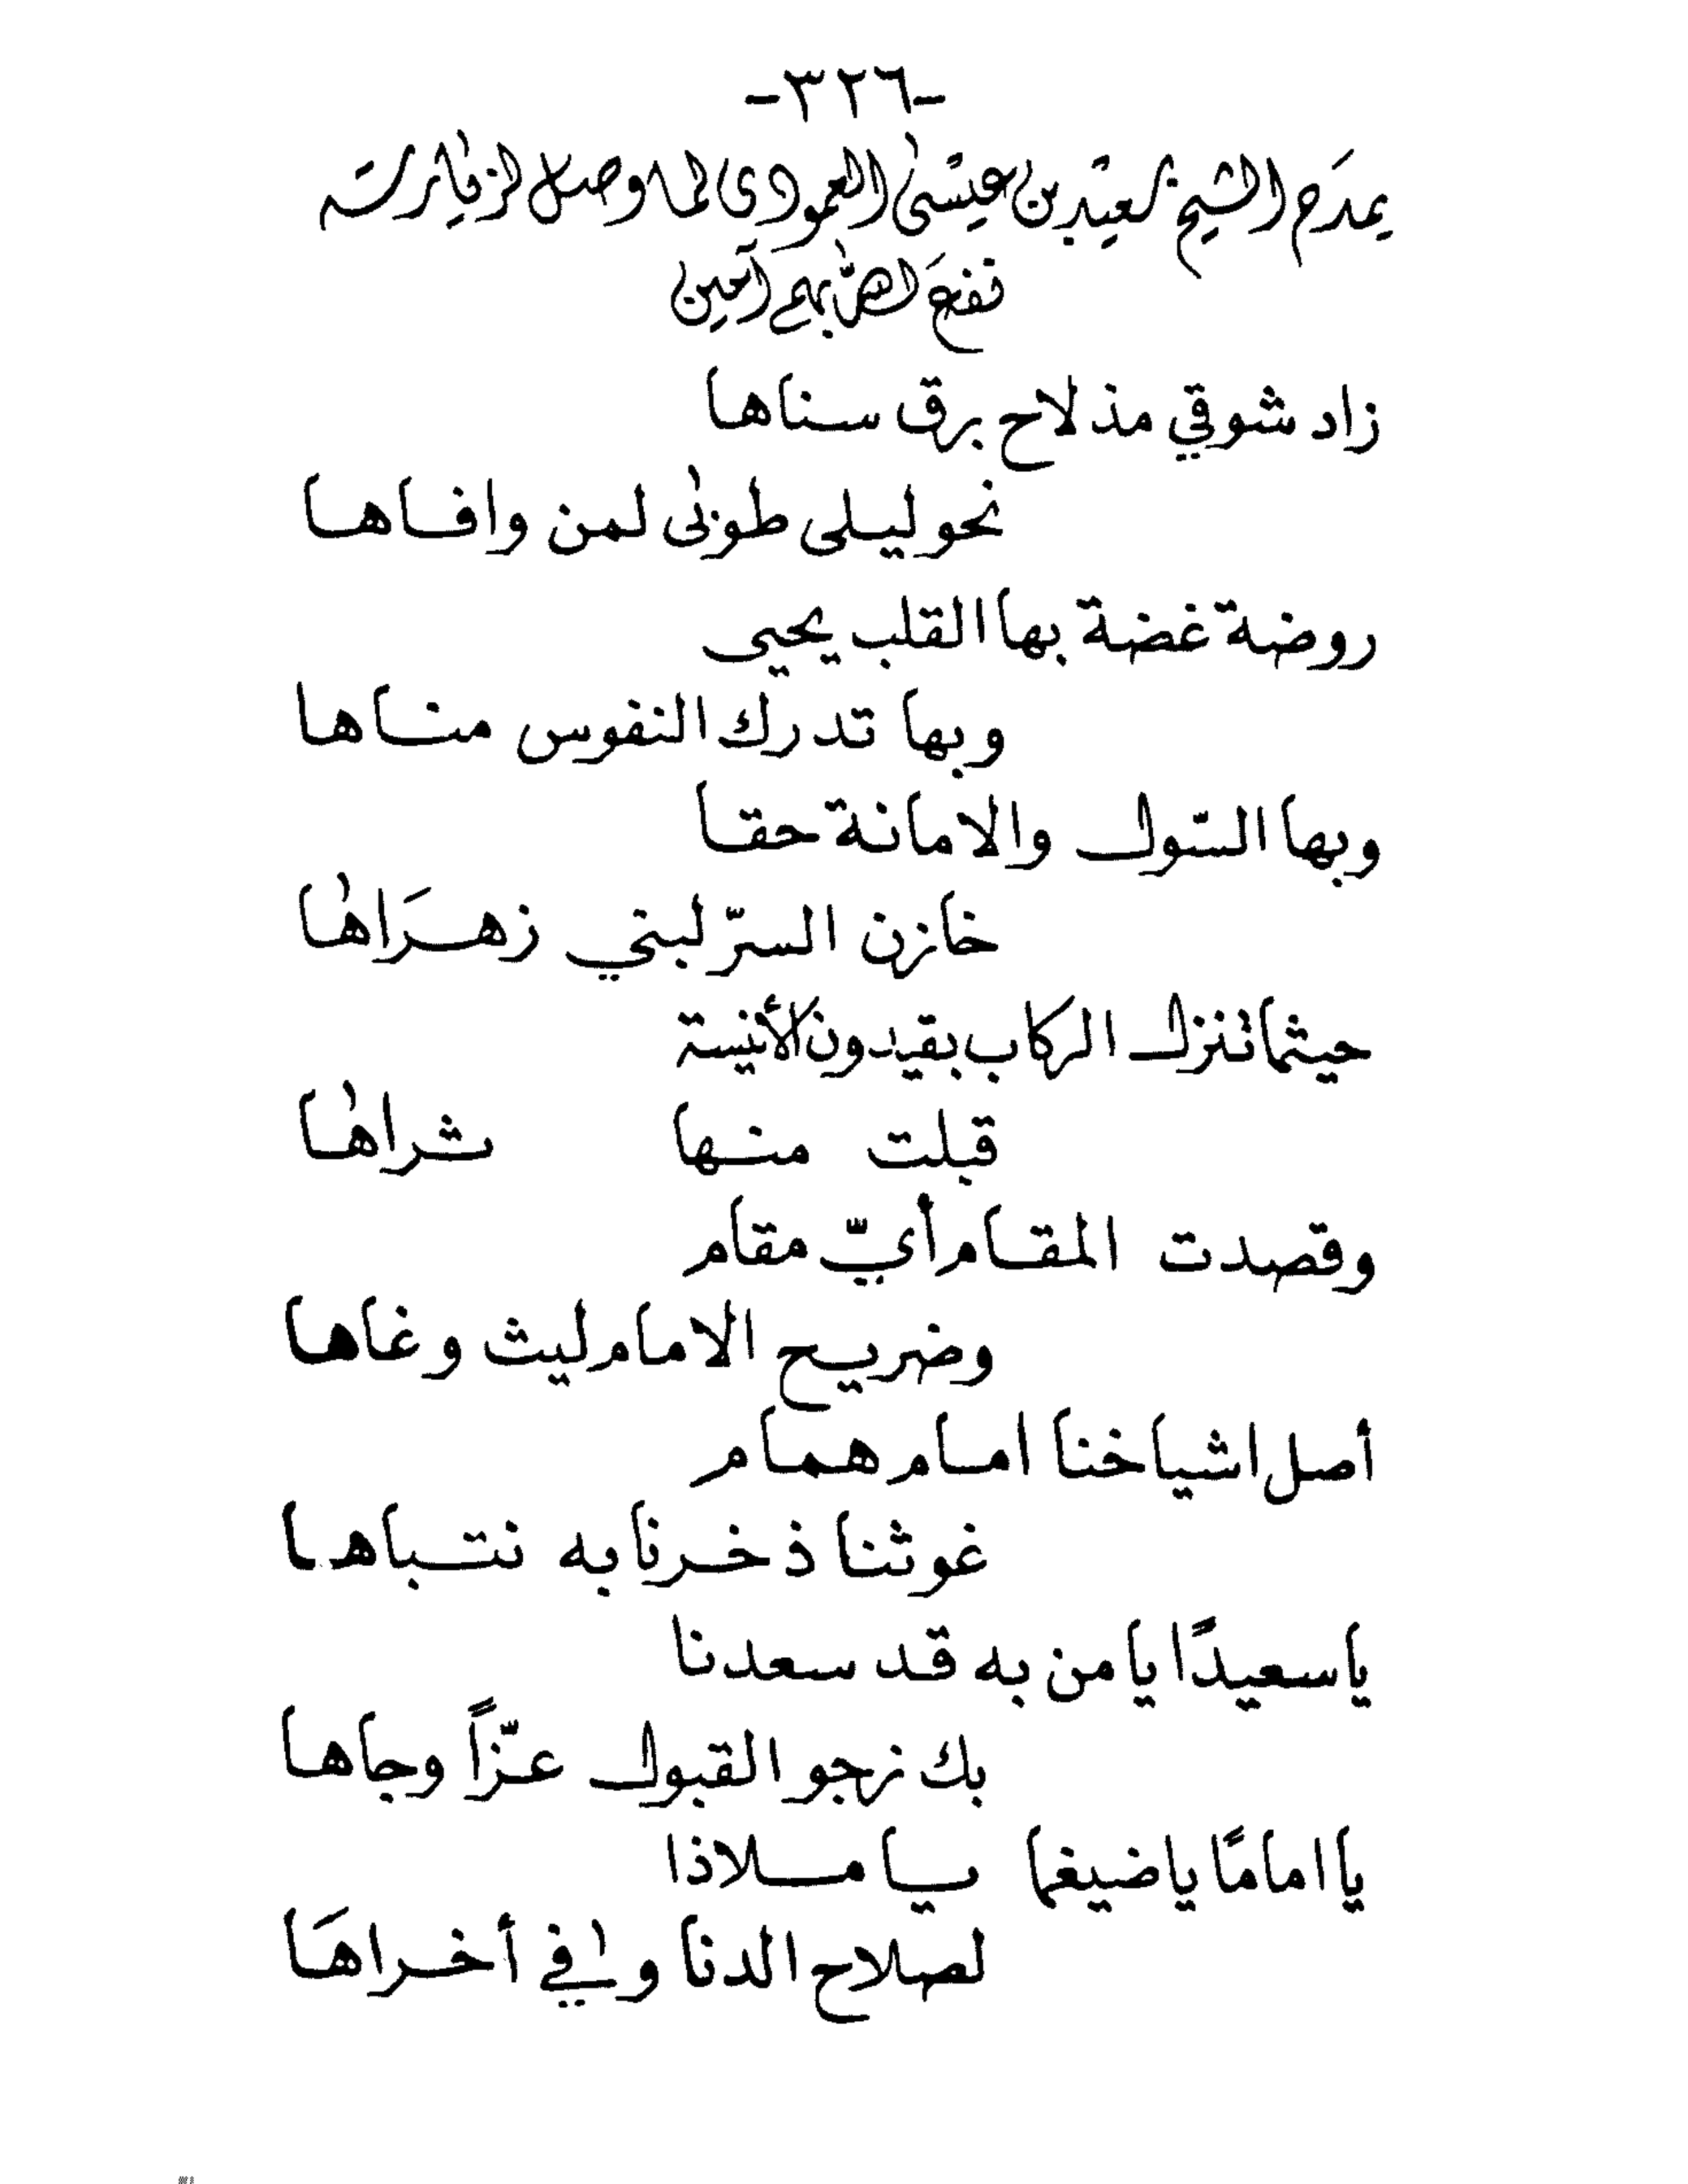 -٣٢٦-
يمدَح الشيخ سعيْد بن عيسْىٰ العمودي لما وصل لزيٰارته
نفعَ اللهّٰ بهم آمين
زاد شوقي مذ لاح برق سناها
نحو ليلى طوبىٰ لمن وافاها
روضة غضة بها القلب يحيى
وبها تدرك النفوس مناها
وبها السّول والامانة حقا
خازن السرّ لبني زهرَاهٰا
حيثما تنزل الركاب بقيدون الأنيسة
قبلت منها ثراهٰا
وقصدت المقام أيّ مقام
وضريح الامام ليث وغاها
أصل اشياخنا امام همام
غوثنا ذخرنا به نتباها
يا سعيدًا يا من به قد سعدنا
بك نرجو القبول عزّاً وجاها
يا امامًا يا ضيغما يا ملاذا
لصلاح الدنا وفي أخراهَا